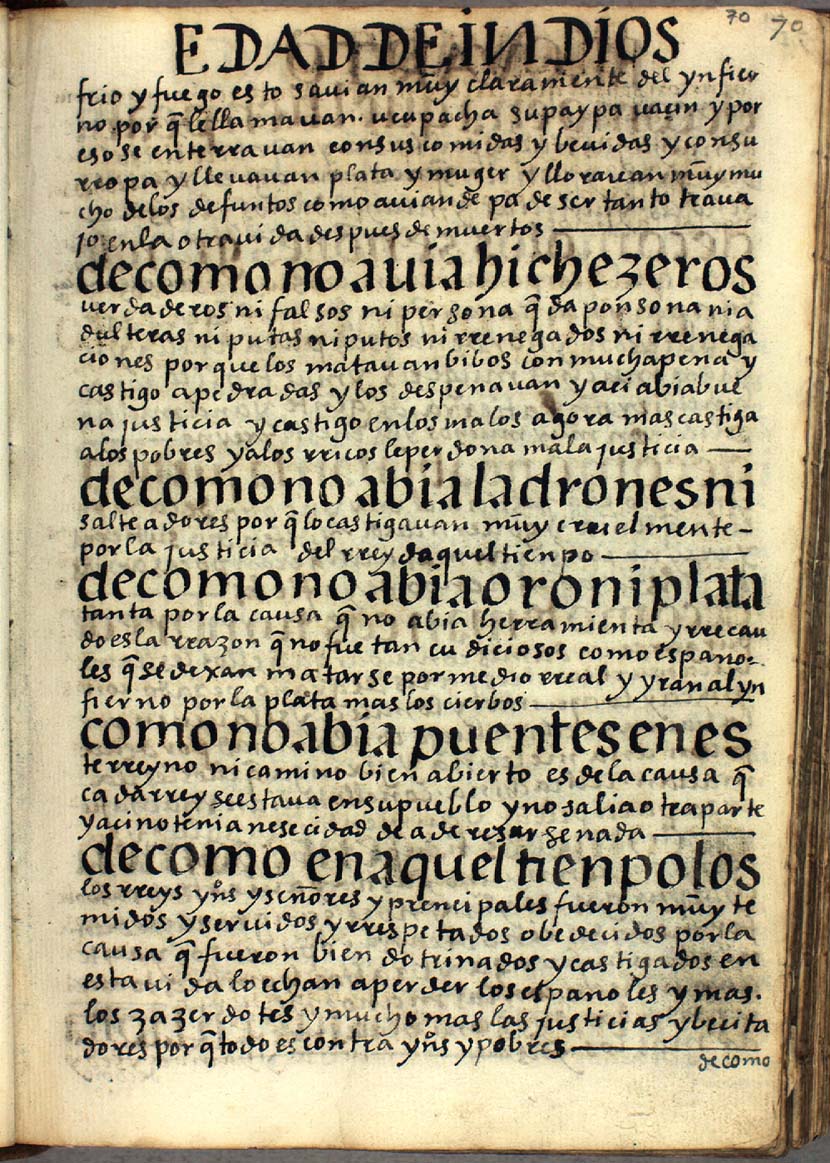 70 70
EDAD DE INDIOS
frio y fuego esto savian mũy claramente del ynfier
no por q̃ le llamavan. ucupacha supaypa uacin y por
eso se enterravan con sus comidas y bevidas y con su
rropa y llevavan plata y muger y lloravan mũy mu
cho de los defuntos como avian de padeser tanto trava
jo en la otra vida despues de muertos
de como no auia hichezeros
verdaderos ni falsos ni persona q̃ da ponsona ni a
dulteras ni putas ni putos ni rrenegados ni rrenega
ciones porque los matavan bibos con mucha pena y
castigo apedradas y los despenavan y aci abia bue
na justicia y castigo en los malos agora mas castiga
a los pobres y a los rricos le perdona mala justicia
de como no abia ladrones ni
salteadores por q̃ lo castigavan mũy cruelmente
por la justicia del rrey daquel tienpo
de como no abia oro ni plata
tanta por la causa q̃ no abia herramienta y rrecau
do es la rrazon q̃ no fue tan cudiciosos como espano
les q̃ se dexan matarse por medio rreal y yran al yn
fierno por la plata mas los cierbos
como no abia puentes en es
te rreyno ni camino bien abierto es de la causa q̃
cada rrey se estava en su pueblo y no salia otra parte
y aci no tenia nesecidad de aderesar ze nada
de como en aquel tienpo los
los rreys yn̊s y señores y prencipales fueron mũy te
midos y servidos y rrespetados obedecidos por la
causa q̃ fueron bien dotrinados y castigados en
esta vida lo echan a perder los espanoles y mas.
los zazerdotes y mucho mas las justicias y becita
dores por q̃ todo es contra yn̊s y pobres
de como